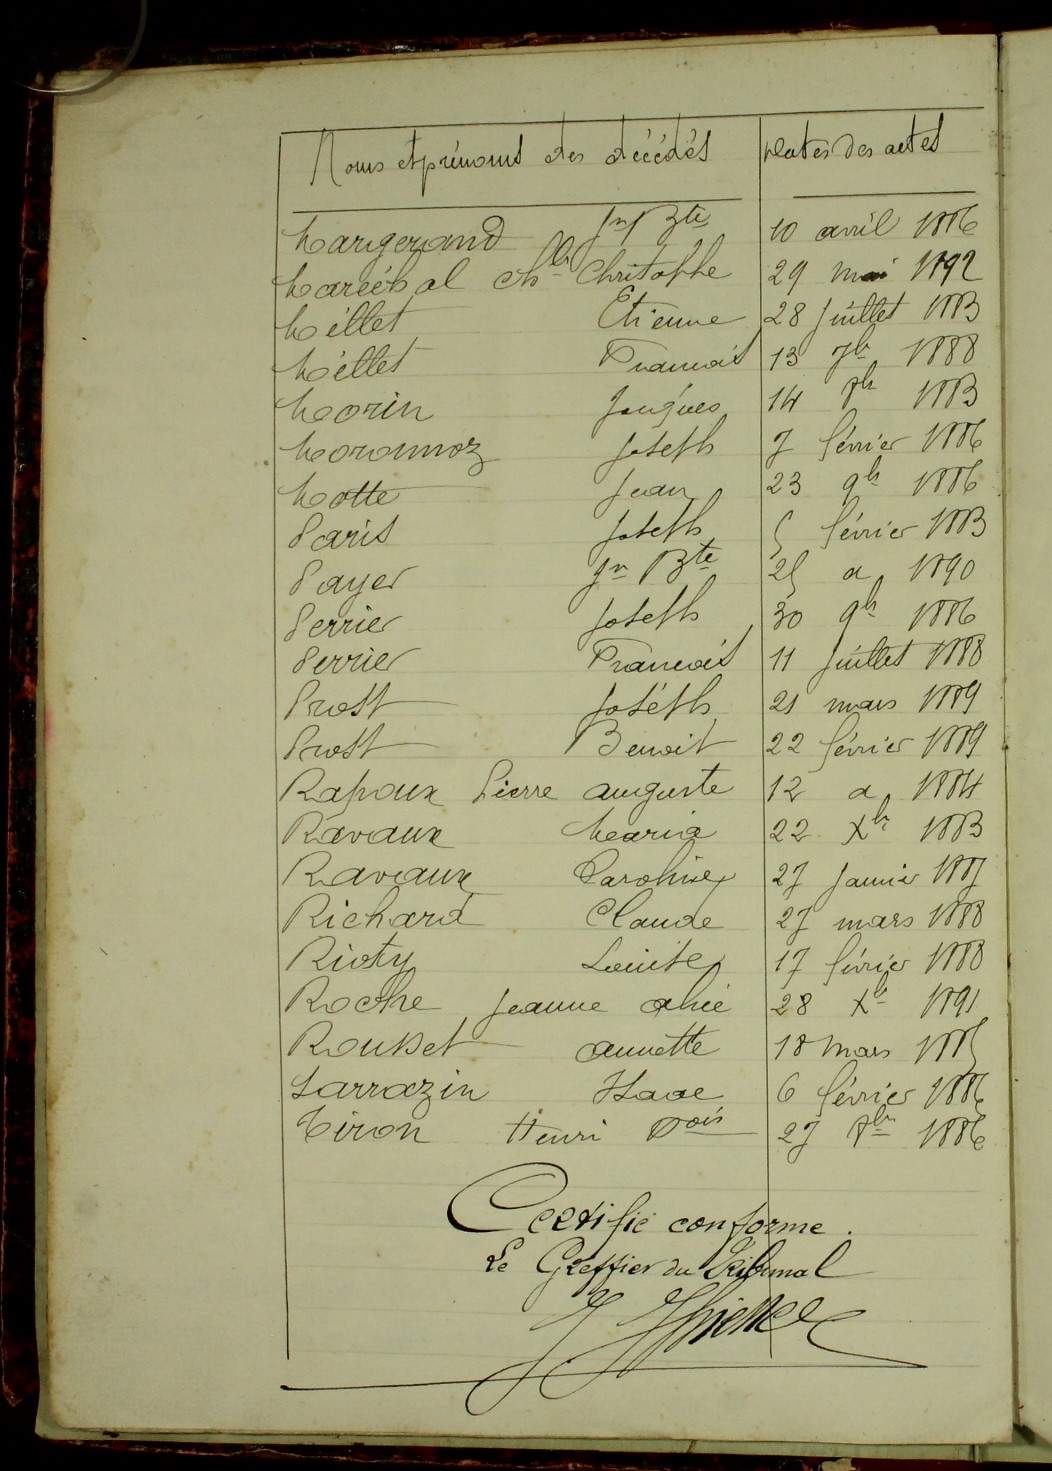 Noms et prénoms des décédés Dates des actes
Margerand Jn Bte 10 avril 1886
Maréchal Christophe 29 mai 1892
Méllet Etienne 28 Juillet 1883
Méllet Francois 13 7bre 1888
Morin Jacques 14 8bre 1883
Moronnoz Joseph 7 février 1886
Motte Jean 23 9bre 1886
Paris Joseph 5 février 1883
Payer Jn Bte 25 a 1890
Perrier Joseph 30 9bre 1886
Perrier Francois 11 Juillet 1888
Prost Joséph 21 mars 1889
Prost Benoit 22 février 1889
Rapoux Pierre auguste 12 a 1884
Ravaux Maria 22 Xbr 1883
Ravaux Caroline 27 Janvier 1887
Richard Claude 27 mars 1888
Rioty Louise 17 février 1888
Roche Jeanne 28 Xbre 1891
Rousset annette 18 mars 1885
Sarrazin Isaac 6 février 1886
Tiron Henri Fois 27 8bre 1886
Certifié conforme.
Le Greffier du Tribunal